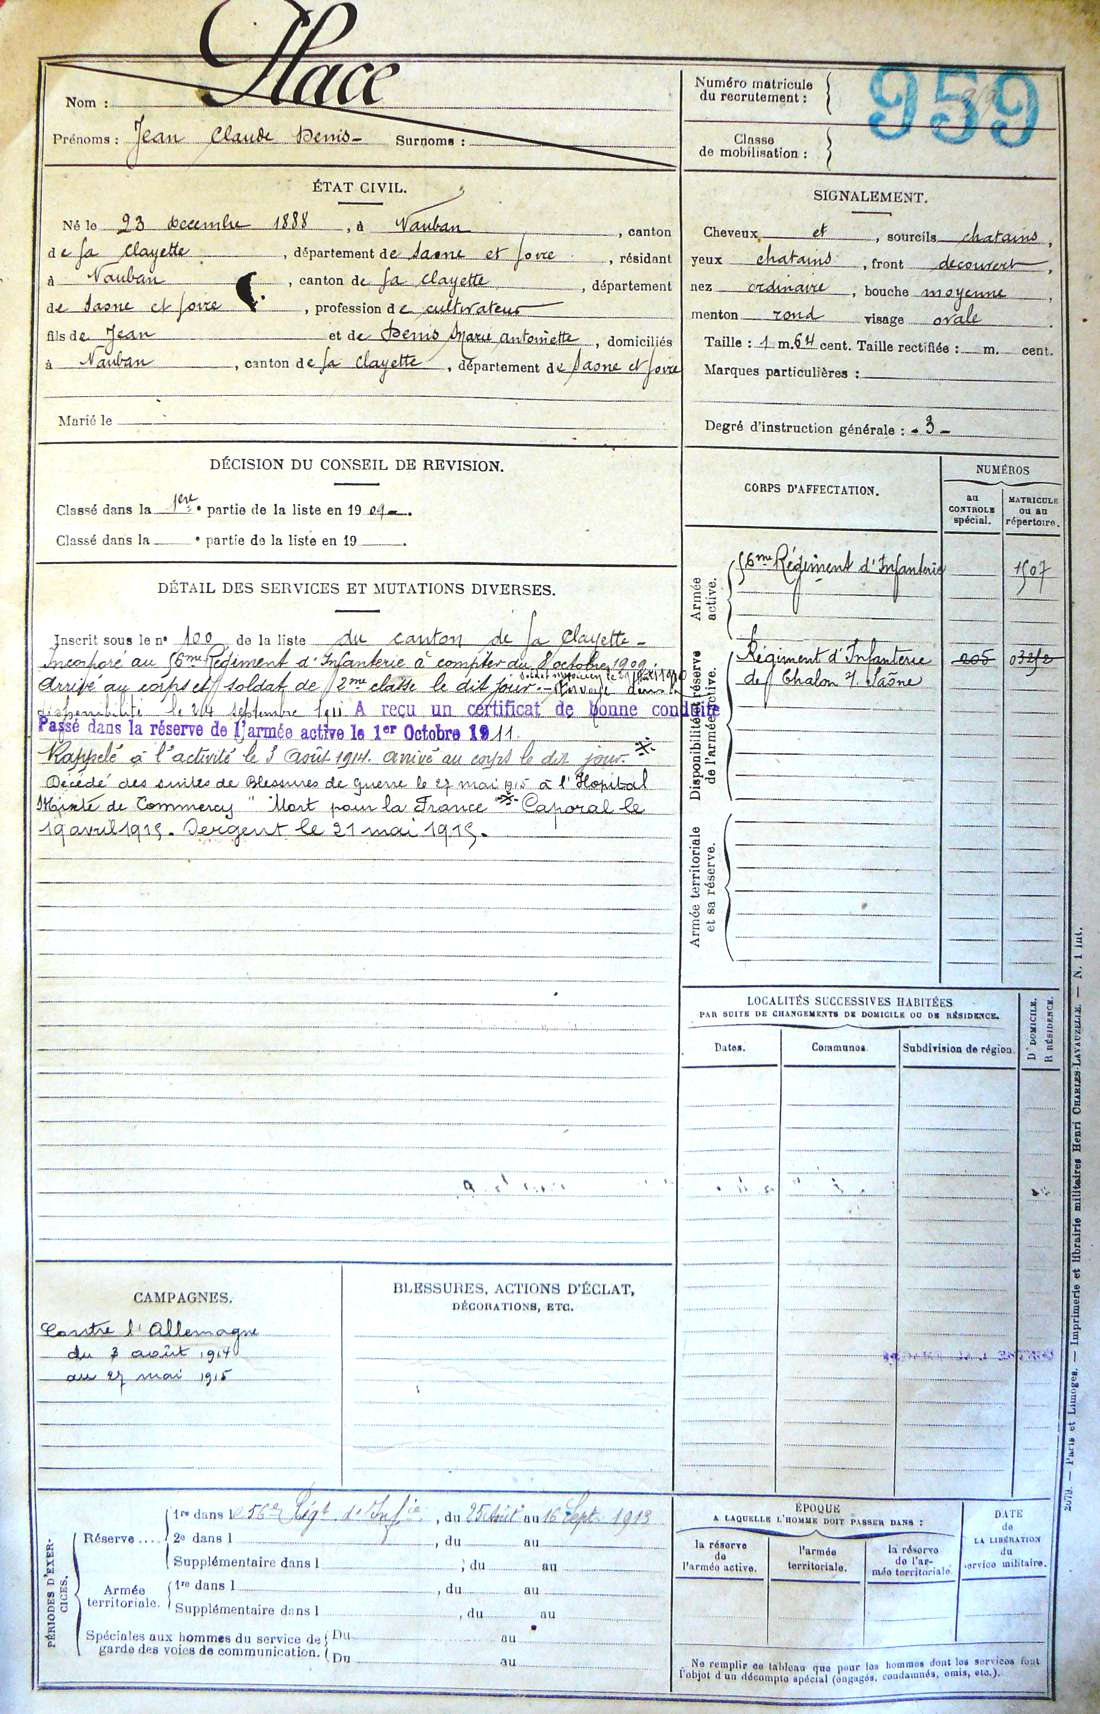 Place
Nom :
Prénoms : Jean Claude Denis Surnoms :
Numéro matricule
du recrutement :
959
Classe
de mobilisation :
ÉTAT CIVIL.
Né le 23 decembre 1888, à Vauban, canton
de la Clayette, département de Saone et Loire, résidant
à Vauban, canton de la Clayette, département
de Saone et Loire, profession de cultivateur
fils de Jean et de Denis Marie Antoinette, domiciliés
à Vauban, canton de la Clayette, département de Saone et Loire
Marié le
SIGNALEMENT.
Cheveux et, sourcils chatains,
yeux chatains, front decouvert,
nez ordinaire, bouche moyenne,
menton rond visage ovale.
Taille : 1 m. 64 cent. Taille rectifiée : m. cent.
Marques particulières :
Degré d'instruction générale : - 3 -
DÉCISION DU CONSEIL DE REVISION.
Classé dans la 1ere partie de la liste en 1909.
Classé dans la e partie de la liste en 19
DÉTAIL DES SERVICES ET MUTATIONS DIVERSES.
Inscrit sous le n° 100 de la liste du canton de la Clayette -
Incorporé au 56me Régiment d'Infanterie à compter du 8 octobre 1909.
Arrivé au corps et soldat de 2me classe le dit jour. - Envoyé dans la
disponibilité le 24 septembre 1911 A reçu un certificat de bonne conduite
Passé dans la réserve de l'armée active le 1er Octobre 1911.
Rappelé à l'activité le 3 Août 1914. arrivé au corps le dit jour.
Décédé des suites de Blessures de guerre le 27 mai 1915 à l'Hopital
Mixte de Commercy " Mort pour la France " Caporal le
19 avril 1915. Sergent le 21 mai 1915.
CORPS D'AFFECTATION.
NUMÉROS
au
CONTROLE
spécial.
MATRICULE
ou au
répertoire.
Armée
active.
56me Régiment d'Infanterie 1507
Disponibilité et réserve
de l'armée active.
Régiment d'Infanterie
de Chalon s/ Saône
Armée territoriale
et sa réserve.
LOCALITÉS SUCCESSIVES HABITÉES
PAR SUITE DE CHANGEMENTS DE DOMICILE OU DE RÉSIDENCE.
Dates. Communes. Subdivision de région.
D DOMICILE.
R RÉSIDENCE.
CAMPAGNES.
Contre l'Allemagne
du 3 août 1914
au 27 mai 1915
BLESSURES, ACTIONS D'ÉCLAT,
DÉCORATIONS, ETC.
PÉRIODES D'EXER-
CICES.
Réserve ....
1re dans le 56e Régt d'Infie, du 25 Août au 16 Sept. 1913
2e dans l, du au
Supplémentaire dans l ; du au
Armée
territoriale.
1re dans l, du au
Supplémentaire dans l, du au
Spéciales aux hommes du service de
garde des voies de communication.
Du au
Du au
ÉPOQUE
A LAQUELLE L'HOMME DOIT PASSER DANS :
la réserve
de
l'armée active.
l'armée
territoriale.
la réserve
de l'ar-
mée territoriale.
DATE
de
LA LIBÉRATION
du
service militaire.
Ne remplir ce tableau que pour les hommes dont les services font
l'objet d'un décompte spécial (engagés, condamnés, omis, etc.).
2079. — Paris et Limoges. — Imprimerie et librairie militaires Henri CHARLES-LAVAUZELLE. — N. 1 int.